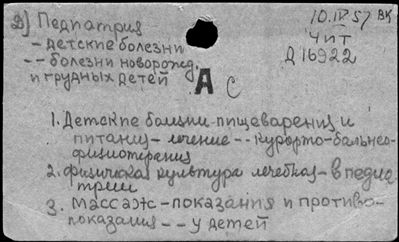 2) Педиатрия
- детские болезни
-- болезни новорожд.
и грудных детей
10.IV.57 ВК
Чит
Д 16922
А С
1. Детские болезни пищеварения и
питания - лечение -- курорто-бальнео-
физиотерапия
2. физическая культура лечебная - в педиа
трии
3. Массаж - показания и противо-
показания -- у детей